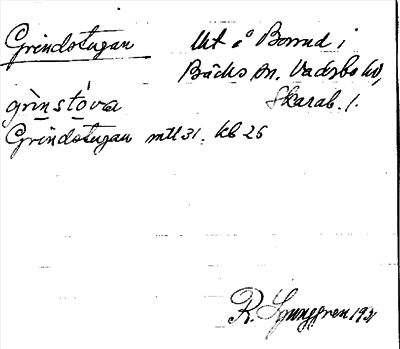 Grindstugan
Utt å Borrud i
Bäcks sn. Vadsbo hd,
Skarab. l.
grinstóva
Grindstugan mtl 31. kb 26
R. Ljunggren 1931